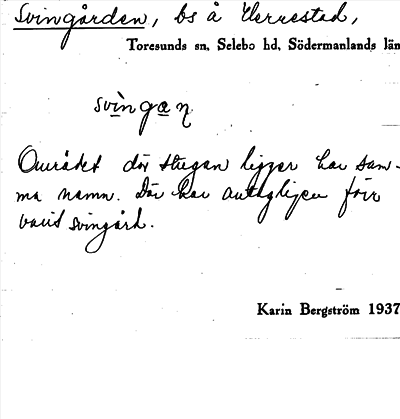 Svingården, bs å Herrestad,
Toresunds sn, Selebo hd, Södermanlands län
svìngạṇ
Området där stugan ligger har sam-
ma namn. Där har antagligen förr
varit svingård.
Karin Bergström 1937